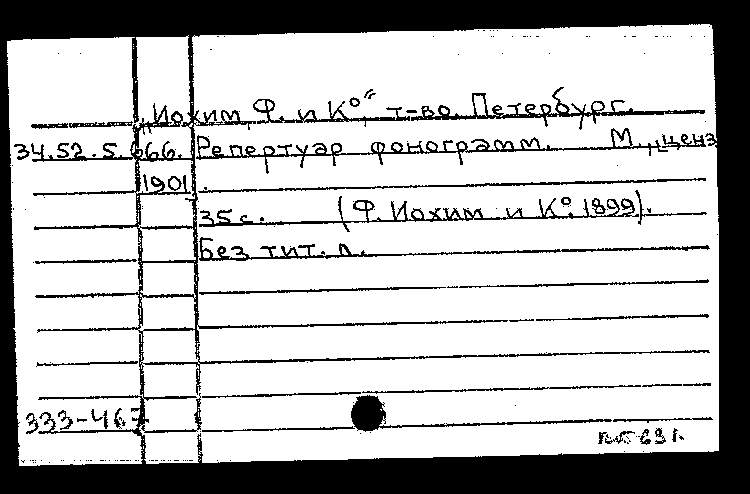 „Иохим, Ф. и К°“, т-во. Петербург.
34.52.5.666. Репертуар фонограмм. М., „ценз
1901.
35 с. (Ф. Иохим и К°. 1899).
Без тит. л.
333-467